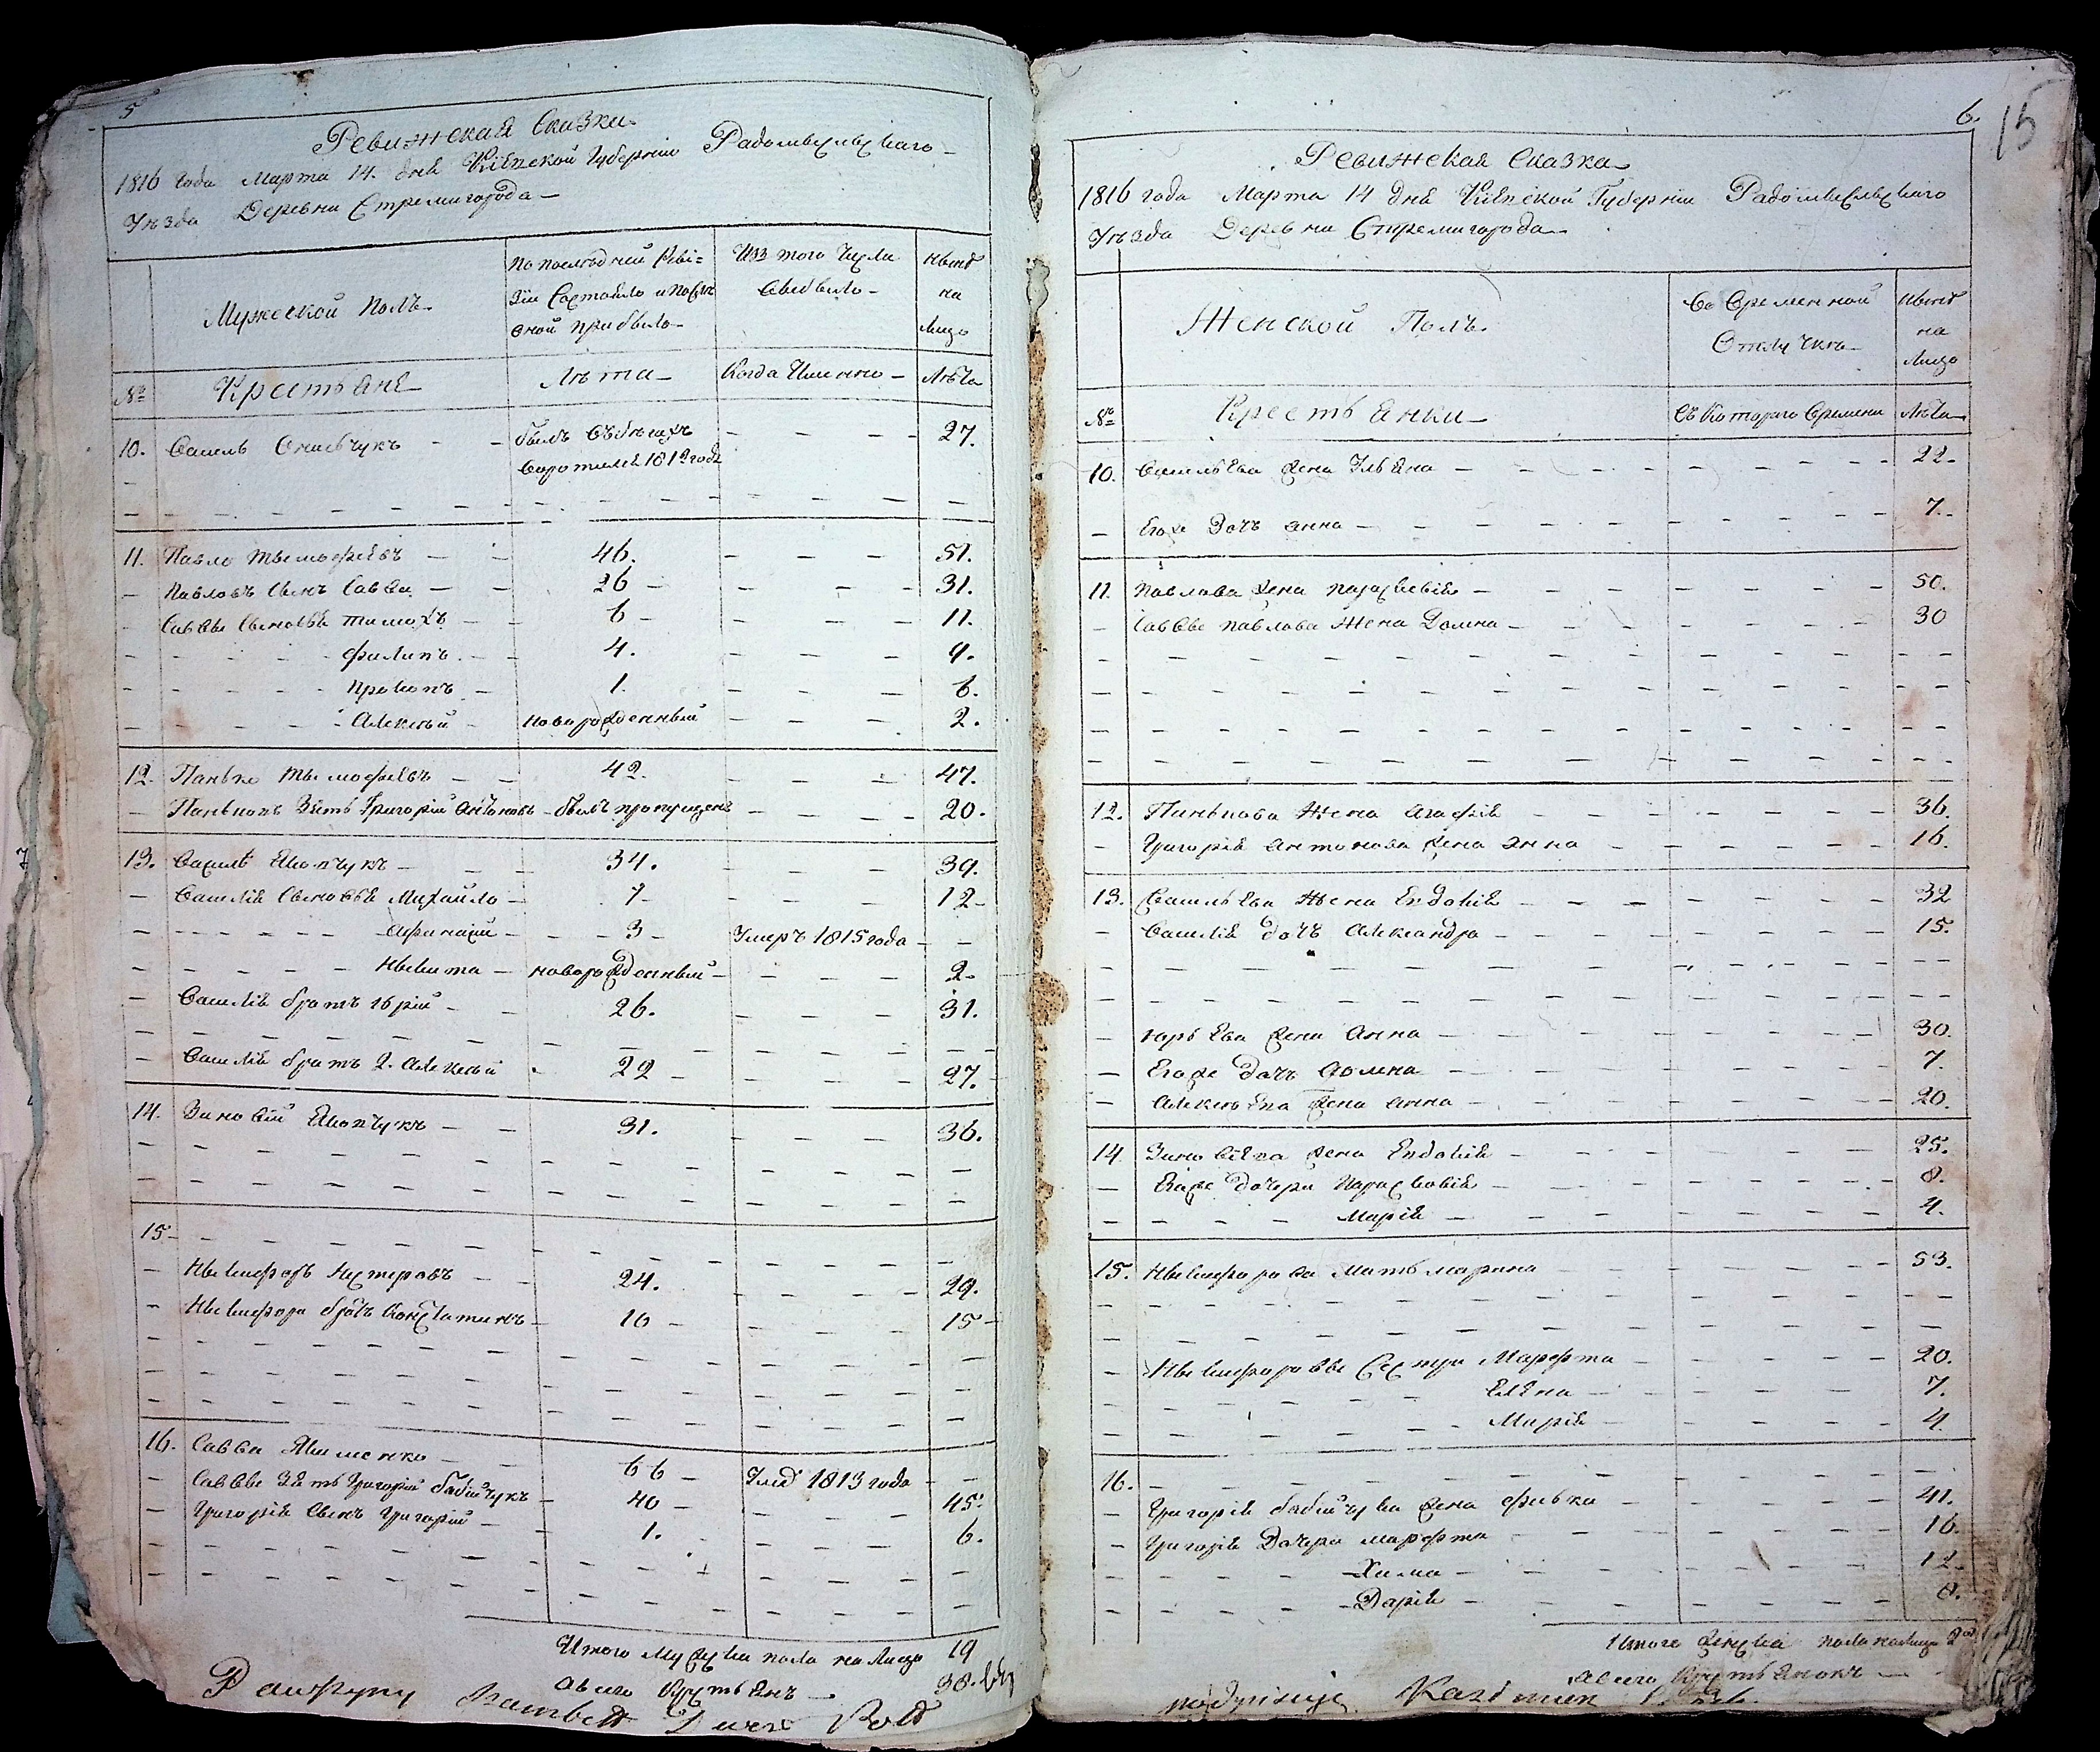 5
Ревижская Сказка
1816 года Марта 14. дня Кіевской Губерніи Радомысльскаго
Уезда Деревни Стремигорода
Мужеской полъ
По последней Реви=
зіи состояло и после
оной прибыло
Изъ того числа
выбыло
ныне
на
лицо
№
Крестьяне
Лета
Когда Именно
Лета
10. Василь был въ бегахъ 27.
воротился 1812 года
11. Павло Тымофеевъ 46. 51.
Павловъ сынъ Савва 26 31.
Саввы сыновья Тимохъ 6 11.
Филипъ 4. 9.
Прокопъ 1. 6.
Алексей новорожденный 2.
12. Панько Тымофеевъ 42. 47.
Паньковъ зять Григорій Антоновъ былъ пропущенъ 20.
13. Василь 34. 39.
Василія сыновья Михайло 7 12
Афанасій 3 Умеръ 1815 года
Никита новорожденный 2.
Василія братъ Юрій 26. 31.
Василія братъ 2. Алексей 22 27.
14. Зиновій 31. 36.
15
Никифоръ Нестеровъ 24. 29.
Никифора братъ Константинъ 10 15
16. Савва 66 Умре 1813 года
Саввы зять Григорій Бабійчукъ 40 45.
Григорія сынъ Григорій 1. 6.
Итого мужеска пола на лицо 19
а всего крестьянъ 38.
6.
15
Ревижская Сказка
1816 года Марта 14 дня Кіевской Губерніи Радомысльскаго
Уезда Деревни Стремигорода
Женской Полъ
Во временной
Отлучке
ныне
на
лицо
№
Крестьянки
Съ котораго времени
Лета
10. Васильева жена Ульяна 22.
Егоже дочь Анна 7.
11. Павлова жена Парасковія 50.
Саввы Павлова жена Домна 30
12. Панькова жена Агафія 36.
Григорія Антонова жена Анна 16.
13. Васильева жена Евдокія 32
Василія дочь Александра 15.
Юрьева жена Анна 30.
Егоже дочь Домна 7.
Алексеева жена Анна 20.
14. Зиновіева жена Евдокія 25.
Егоже дочери Парасковія 8.
Марія 4.
15. Никифорова мать Марина 53.
Никифоровы сестры Марфа 20.
Елена 7.
Марія 4.
16.
Григорія Бабійчука жена Фивка 41.
Григорія дочери Марфа 16.
Хима 12.
Дарія 8.
Итого женска пола на лицо
а всего крестьянокъ